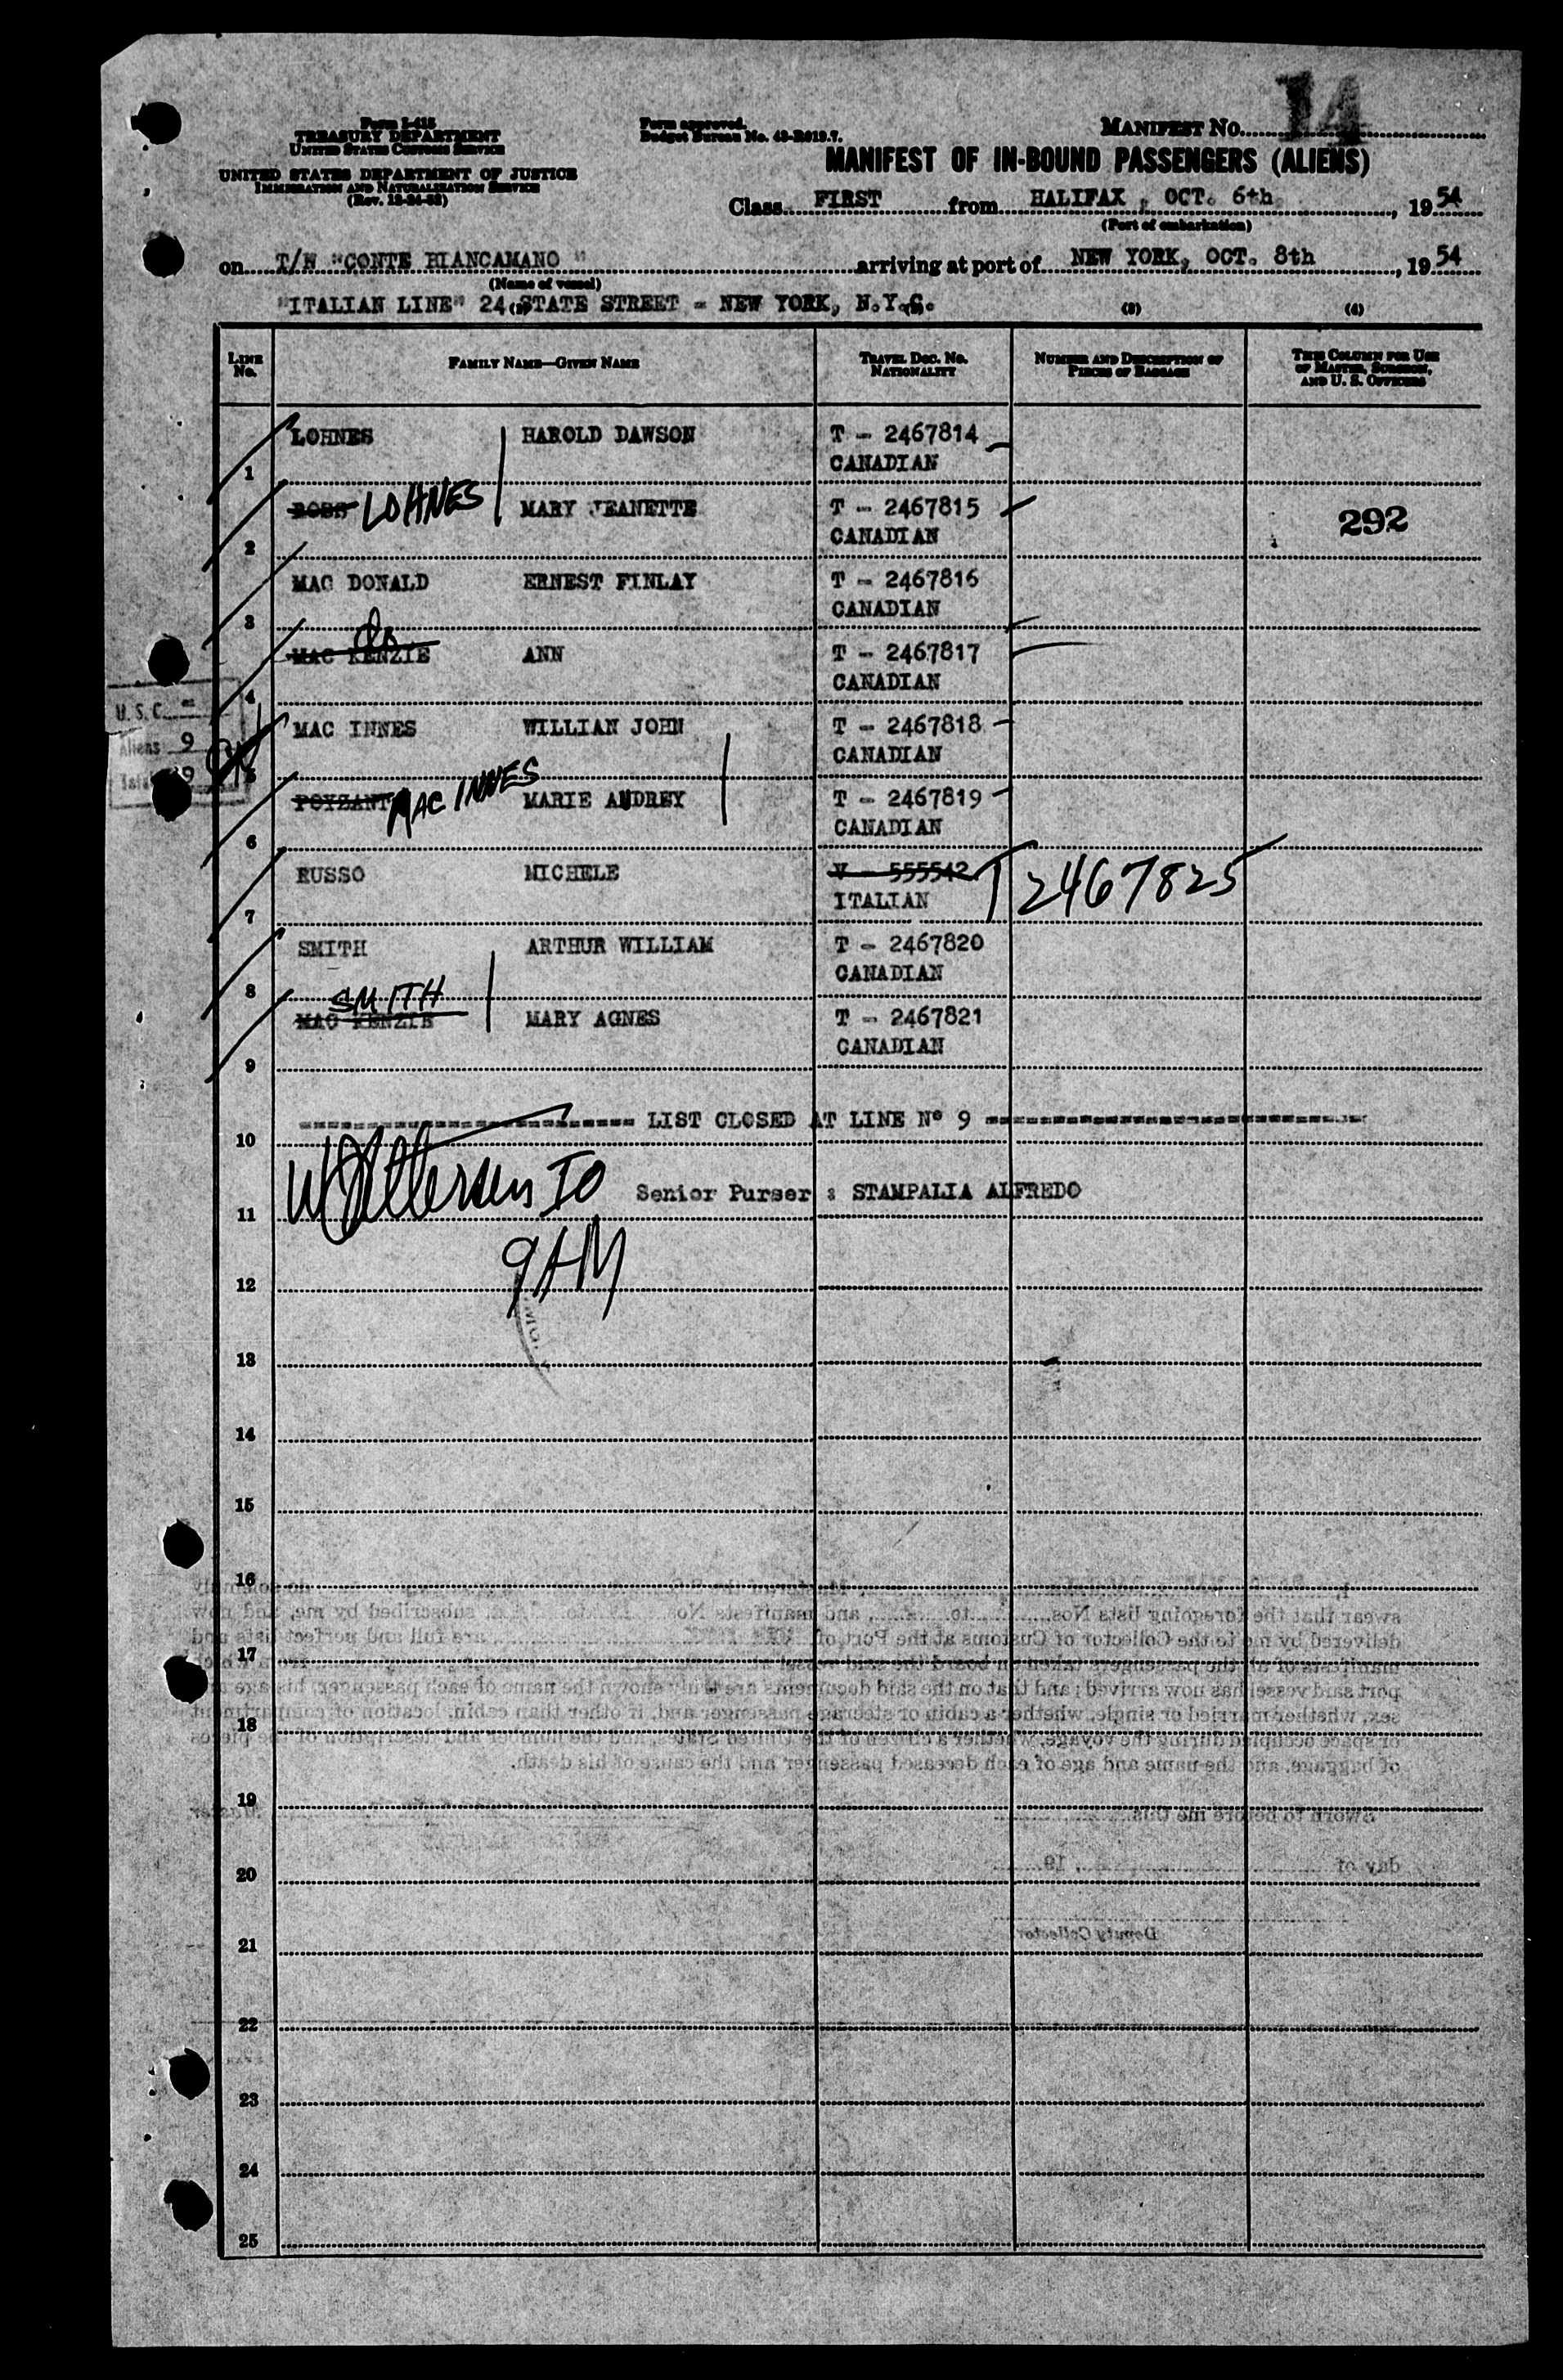 Form I-415
TREASURY DEPARTMENT
UNITED STATES CUSTOMS SERVICE
UNITED STATES DEPARTMENT OF JUSTICE
IMMIGRATION AND NATURALIZATION SERVICE
(Rev. 12-24-52)
Form approved.
Budget Bureau No. 43-R019.7.
MANIFEST No. 14
MANIFEST OF IN-BOUND PASSENGERS (ALIENS)
Class FIRST from HALIFAX , OCT. 6th , 1954
(Port of embarkation)
on T/N "CONTE BIANCAMANO " arriving at port of NEW YORK, OCT. 8th , 1954
(Name of vessel)
"ITALIAN LINE" 24 STATE STREET - NEW YORK, N.Y.
(3) (4)
LINE No. FAMILY NAME—GIVEN NAME TRAVEL DOC. NO. NATIONALITY NUMBER AND DESCRIPTION OF PIECES OF BAGGAGE THIS COLUMN FOR USE OF MASTER, SURGEON, AND U. S. OFFICERS
LOHNES HAROLD DAWSON T - 2467814
1 CANADIAN
ROSS LOHNES MARY JEANETTE T - 2467815 292
2 CANADIAN
MAC DONALD ERNEST FINLAY T - 2467816
3 CANADIAN
Do
MAC KENZIE ANN T - 2467817
4 CANADIAN
U.S.C. -
MAC INNES WILLIAN JOHN T - 2467818
Aliens 9
5 CANADIAN
9
POYZANT MAC INNES MARIE AUDREY T - 2467819
6 CANADIAN
RUSSO MICHELE V - 555542 T 2467825
7 ITALIAN
SMITH ARTHUR WILLIAM T - 2467820
8 CANADIAN
SMITH
MAC KENZIE MARY AGNES T - 2467821
9 CANADIAN
LIST CLOSED AT LINE N° 9
10
IO Senior Purser : STAMPALIA ALFREDO
11
9AM
12
13
14
15
16
swear that the foregoing lists Nos. to , and manifests Nos. to , subscribed by me, and now
delivered by me to the Collector of Customs at the Port of are full and perfect lists and
17
manifests of all the passengers taken on board the said vessel at
port said vessel has now arrived; and that on the said documents are truly shown the name of each passenger; his age
sex, whether married or single, whether a cabin or steerage passenger and, if other than cabin, location of compartment
18
or space occupied during the voyage, whether a citizen of the United States, and the number and description of the pieces
of baggage, and the name and age of each deceased passenger and the cause of his death.
19
Sworn to before me this Master
day of , 19
20
Deputy Collector
21
22
23
24
25